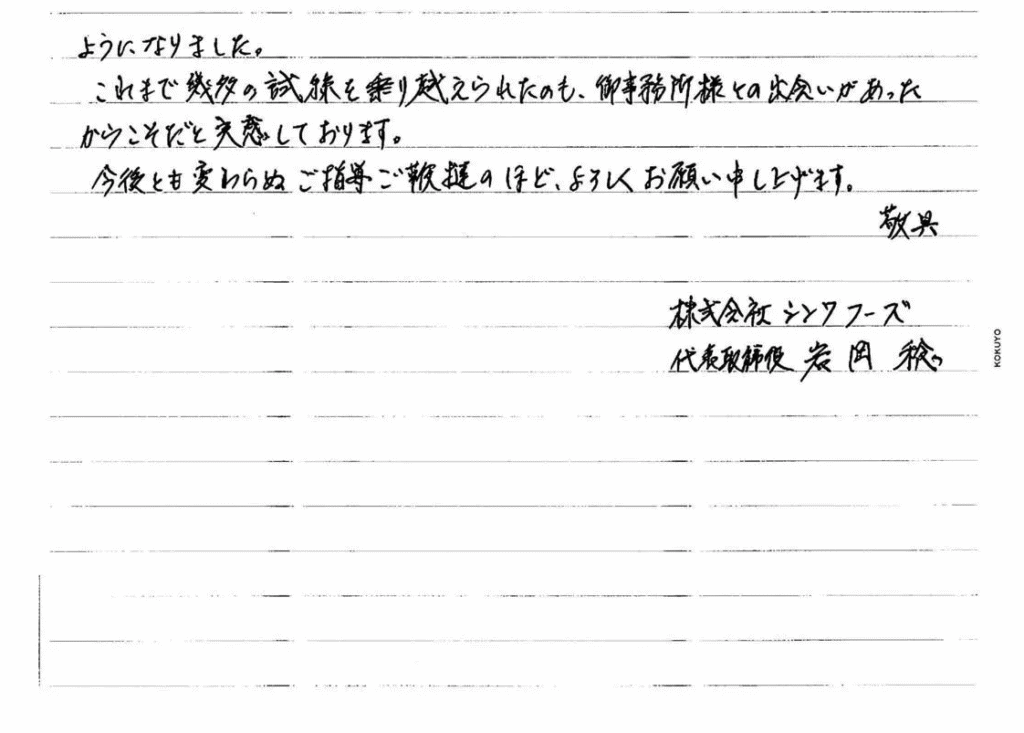 ようになりました。
これまで幾多の試練を乗り越えられたのも、御事務所様との出会いがあった
からこそだと実感しております。
今後とも変わらぬご指導ご鞭撻のほど、よろしくお願い申し上げます。
敬具
株式会社シンワフーズ
代表取締役 岩岡 稔
KOKUYO